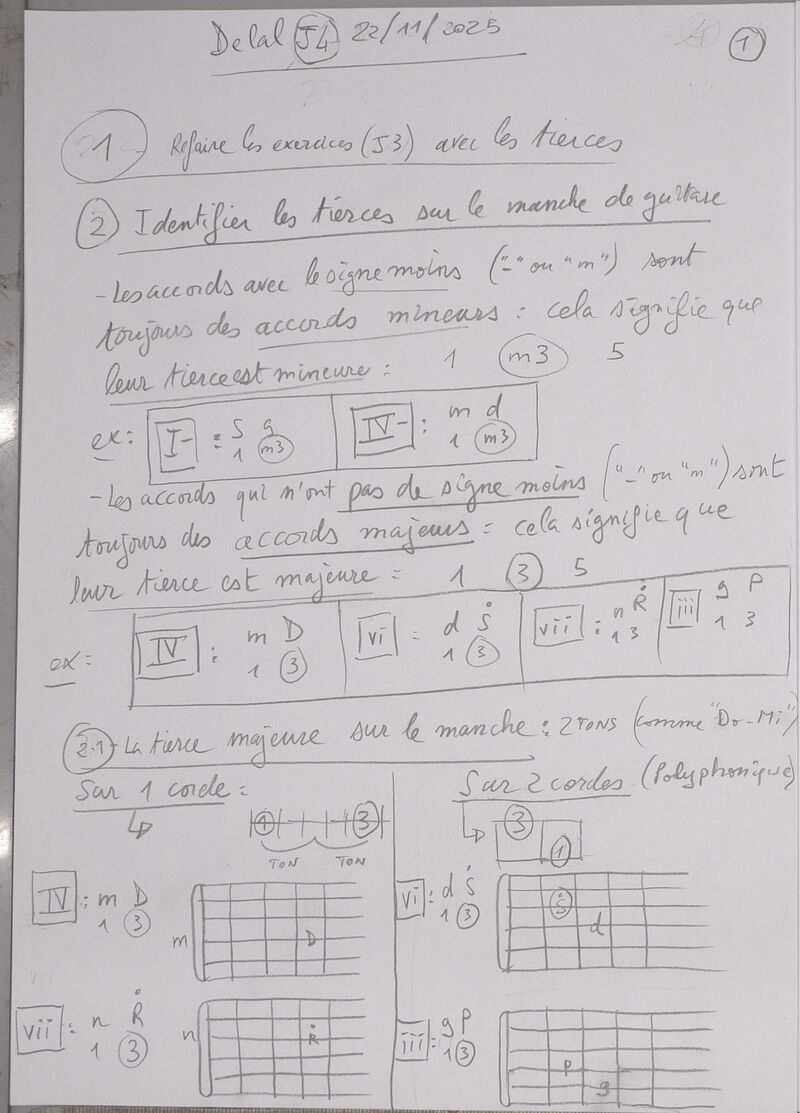 Delal J4 22/11/2025
1
1 - Refaire les exercices (J3) avec les tierces
2 Identifier les tierces sur le manche de guitare
- Les accords avec le signe moins ("-" ou "m") sont
toujours des accords mineurs : cela signifie que
leur tierce est mineure : 1 m3 5
ex: I- : S g IV- : m d
1 m3 1 m3
- Les accords qui n'ont pas de signe moins ("-" ou "m") sont
toujours des accords majeurs : cela signifie que
leur tierce est majeure = 1 3 5
ex: IV : m D vi : d Ṡ vii : n Ṙ iii g P
1 3 1 3 1 3 1 3
2.1 - La tierce majeure sur le manche : 2 TONS (comme "Do-Mi")
Sur 1 corde :
1 3
TON TON
IV : m D
1 3
m D
vii : n Ṙ
1 3
n Ṙ
Sur 2 cordes (Polyphonique)
3
1
vi : d Ṡ
1 3
Ṡ
d
iii : g P
1 3
P
g